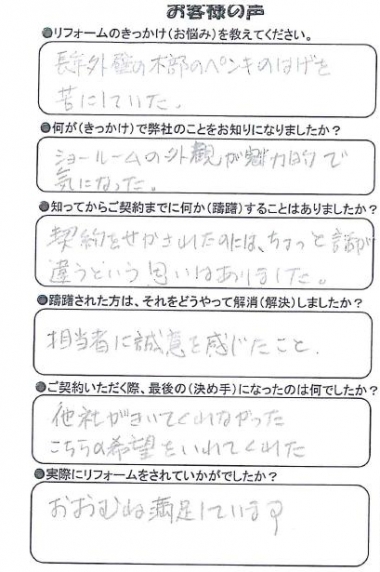 お客様の声
●リフォームのきっかけ(お悩み)を教えてください。
長年外壁の木部のペンキのはげを
苦にしていた。
●何が(きっかけ)で弊社のことをお知りになりましたか?
ショールームの外観が魅力的で
気になった。
●知ってからご契約までに何か(躊躇)することはありましたか?
契約をせかされたのには、ちょっと話が
違うという思いはありました。
●躊躇された方は、それをどうやって解消(解決)しましたか?
担当者に誠意を感じたこと.
●ご契約いただく際、最後の(決め手)になったのは何でしたか?
他社がきいてくれなかった
こちらの希望をいれてくれた
●実際にリフォームをされていかがでしたか?
おおむね満足しています